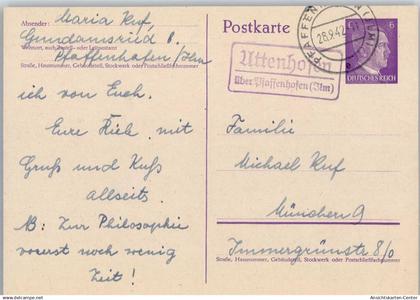 Absender: Maria Ruf,
Gundamsried 8.
Wohnort, auch Zustell- oder Leitpostamt
Pfaffenhofen/Ilm
Straße, Hausnummer, Gebäudeteil, Stockwerk oder Postschließfachnummer
ich von Euch.
Eure Riek mit
Gruß und Kuß
allseits.
NB: Zur Philosophie
vorerst noch wenig
Zeit!
Postkarte
PFAFFENHOFEN (ILM)
28.9.42
6
DEUTSCHES REICH
Uttenhofen
über Pfaffenhofen (Ilm)
Familie
Michael Ruf
München 9
Immergrünstr 8/0
Straße, Hausnummer, Gebäudeteil, Stockwerk oder Postschließfachnummer